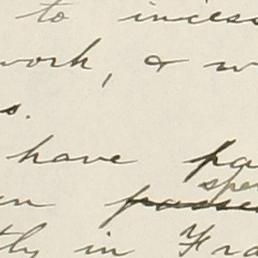 to incess
work, & w
s.
have pa
spe
en passe
tly in Fra